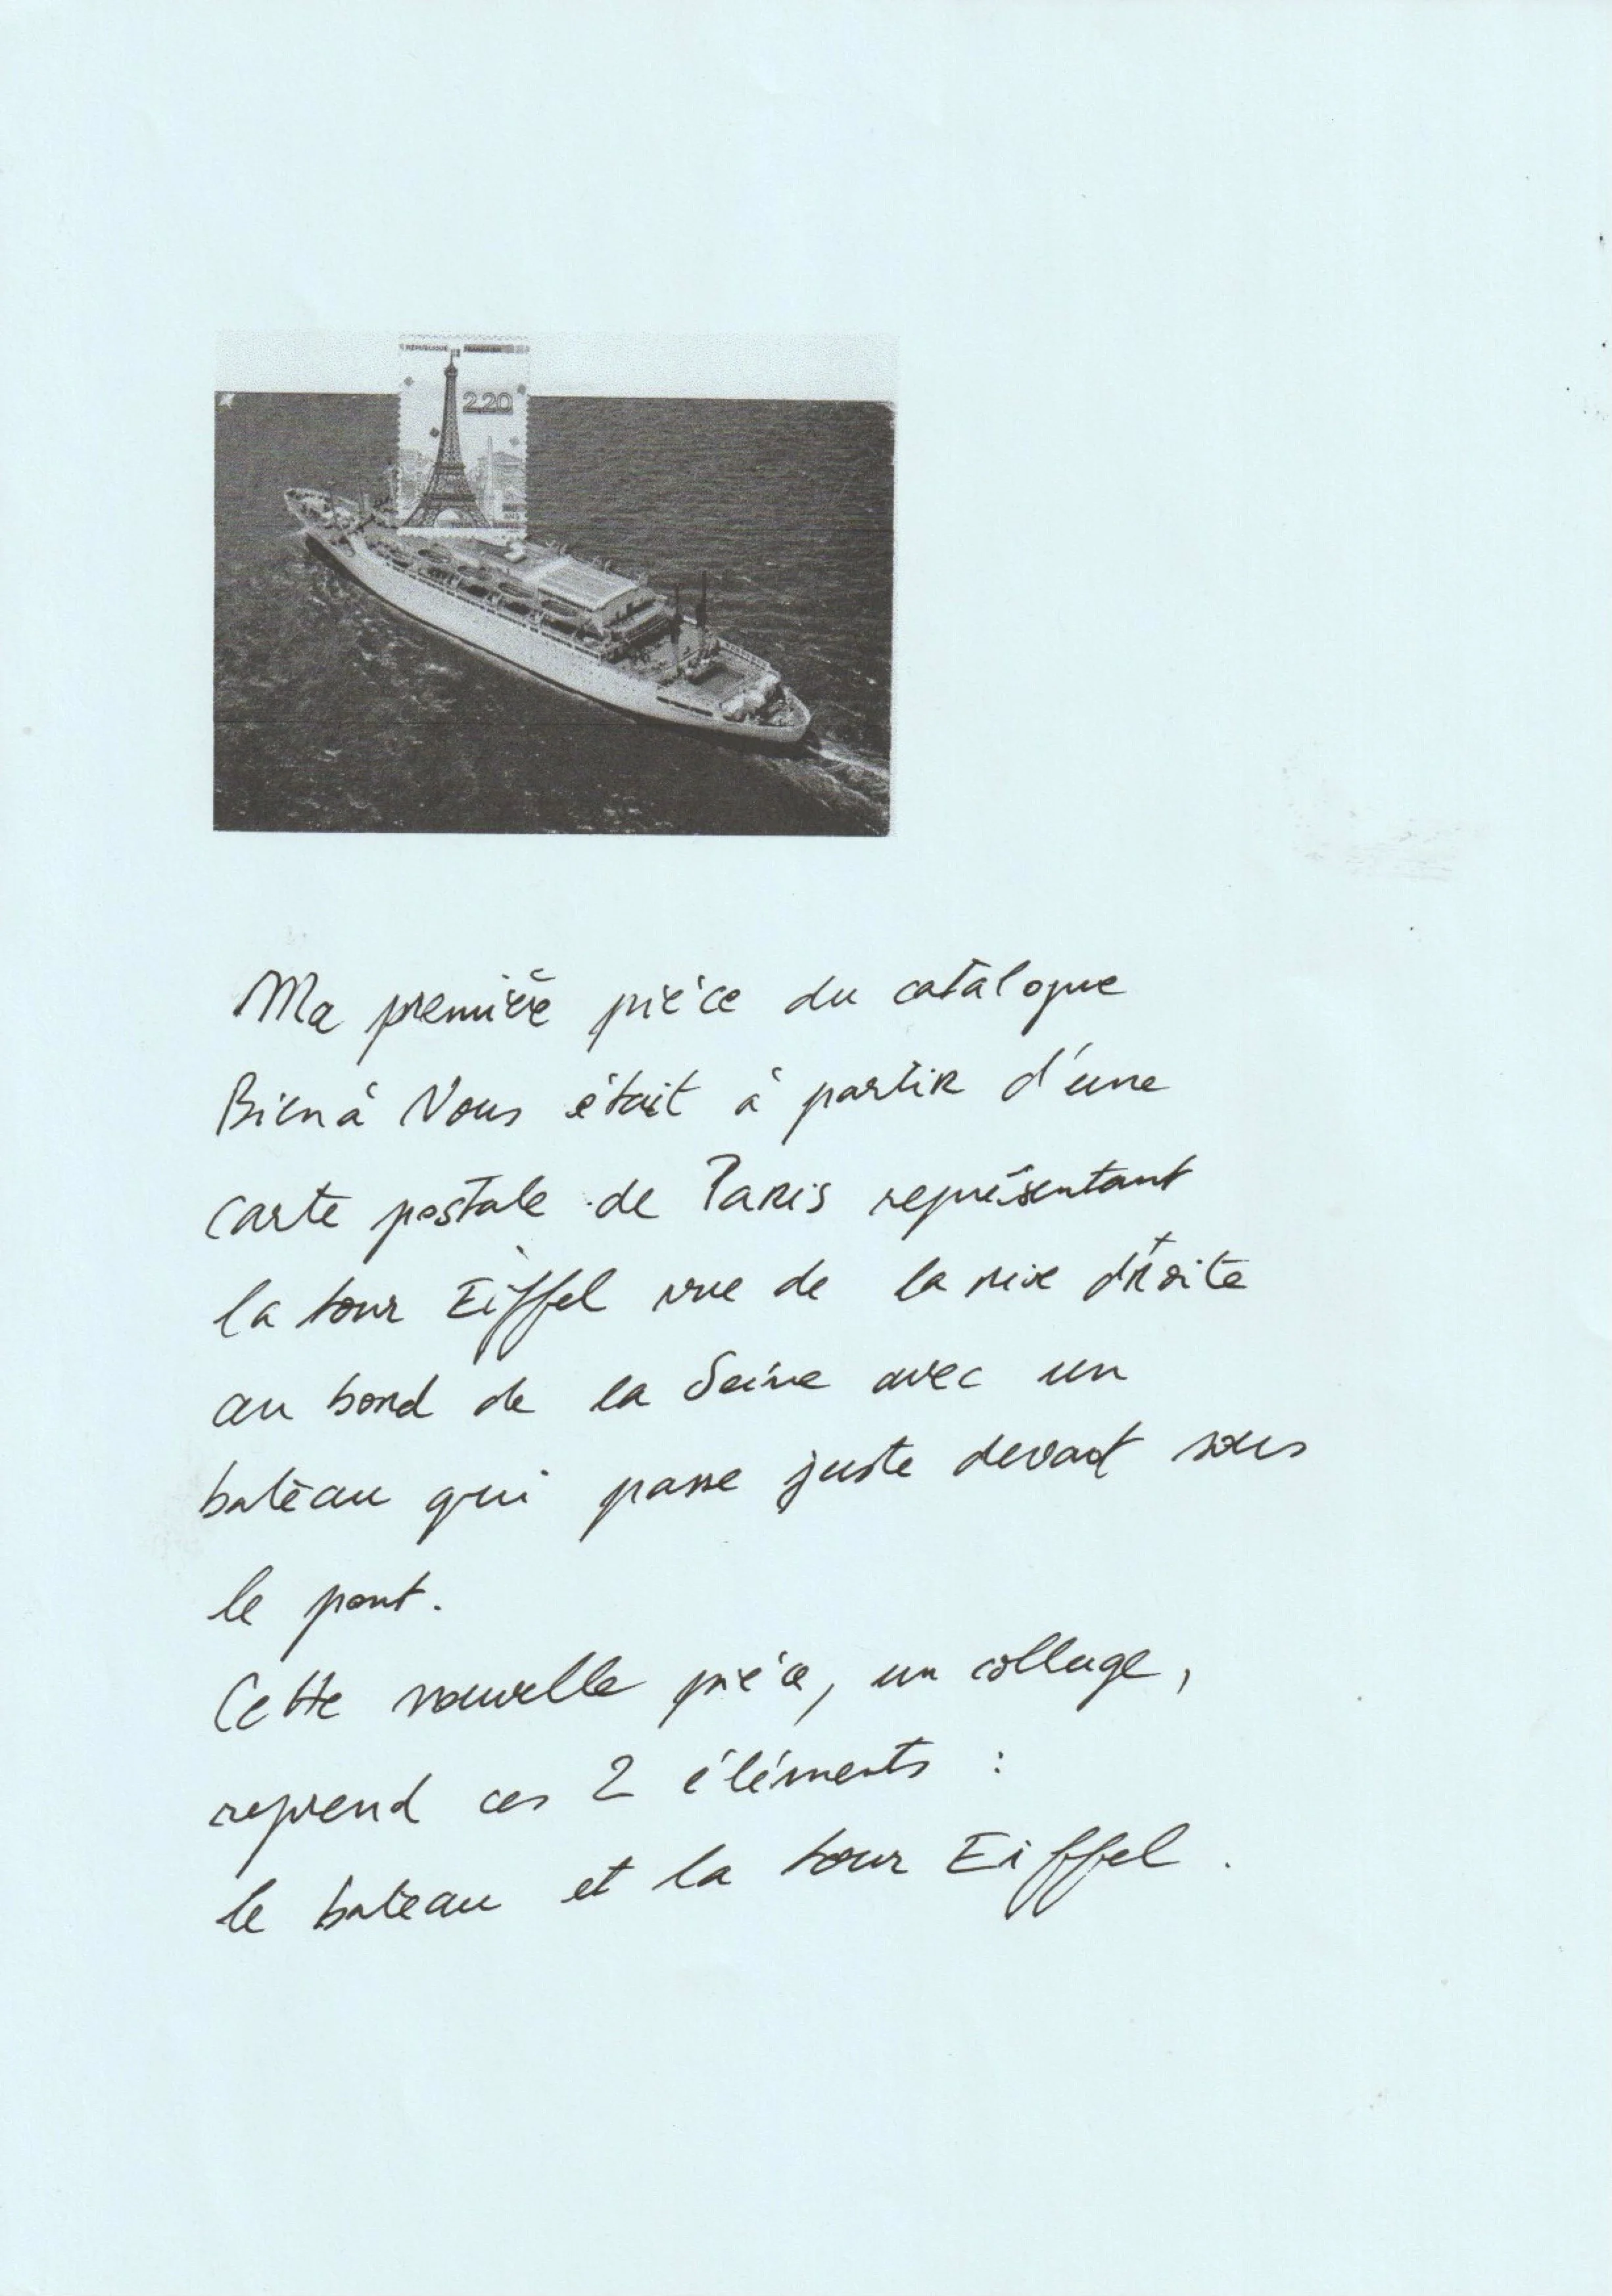 RÉPUBLIQUE FRANÇAISE
2,20
Ma première pièce du catalogue
Bien à Vous était à partir d'une
carte postale de Paris représentant
la tour Eiffel vue de la rive droite
au bord de la Seine avec un
bateau qui passe juste devant sous
le pont.
Cette nouvelle pièce, un collage,
reprend ces 2 éléments :
le bateau et la tour Eiffel.